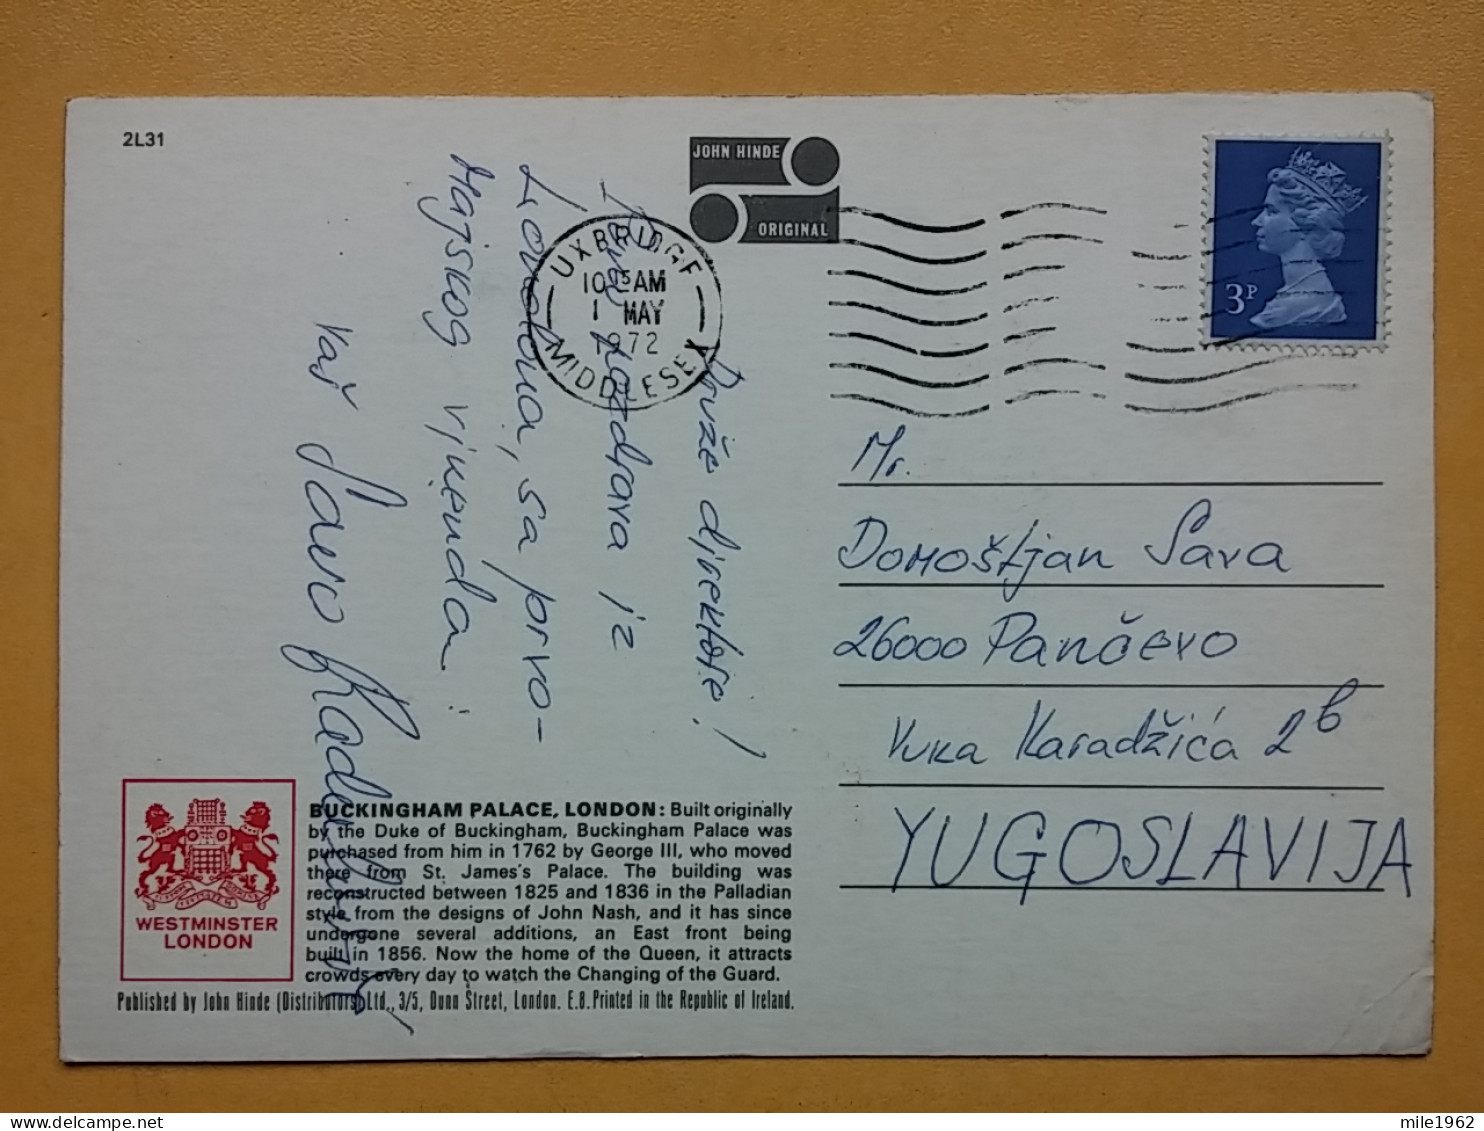 2L31
JOHN HINDE
ORIGINAL
UXBRIDGE
10 15 AM
1 MAY
1972
MIDDLESEX
3P
Druže direktore!
pozdrava iz
Londona, sa prvo-
majskog vikenda!
Vaš Savo
Mr.
Domoštjan Sava
26000 Pančevo
Vuka Karadžića 2b
YUGOSLAVIJA
WESTMINSTER
LONDON
BUCKINGHAM PALACE, LONDON: Built originally
by the Duke of Buckingham, Buckingham Palace was
purchased from him in 1762 by George III, who moved
there from St. James's Palace. The building was
reconstructed between 1825 and 1836 in the Palladian
style from the designs of John Nash, and it has since
undergone several additions, an East front being
built in 1856. Now the home of the Queen, it attracts
crowds every day to watch the Changing of the Guard.
Published by John Hinde (Distributors) Ltd., 3/5, Dunn Street, London. E.8. Printed in the Republic of Ireland.
mile1962